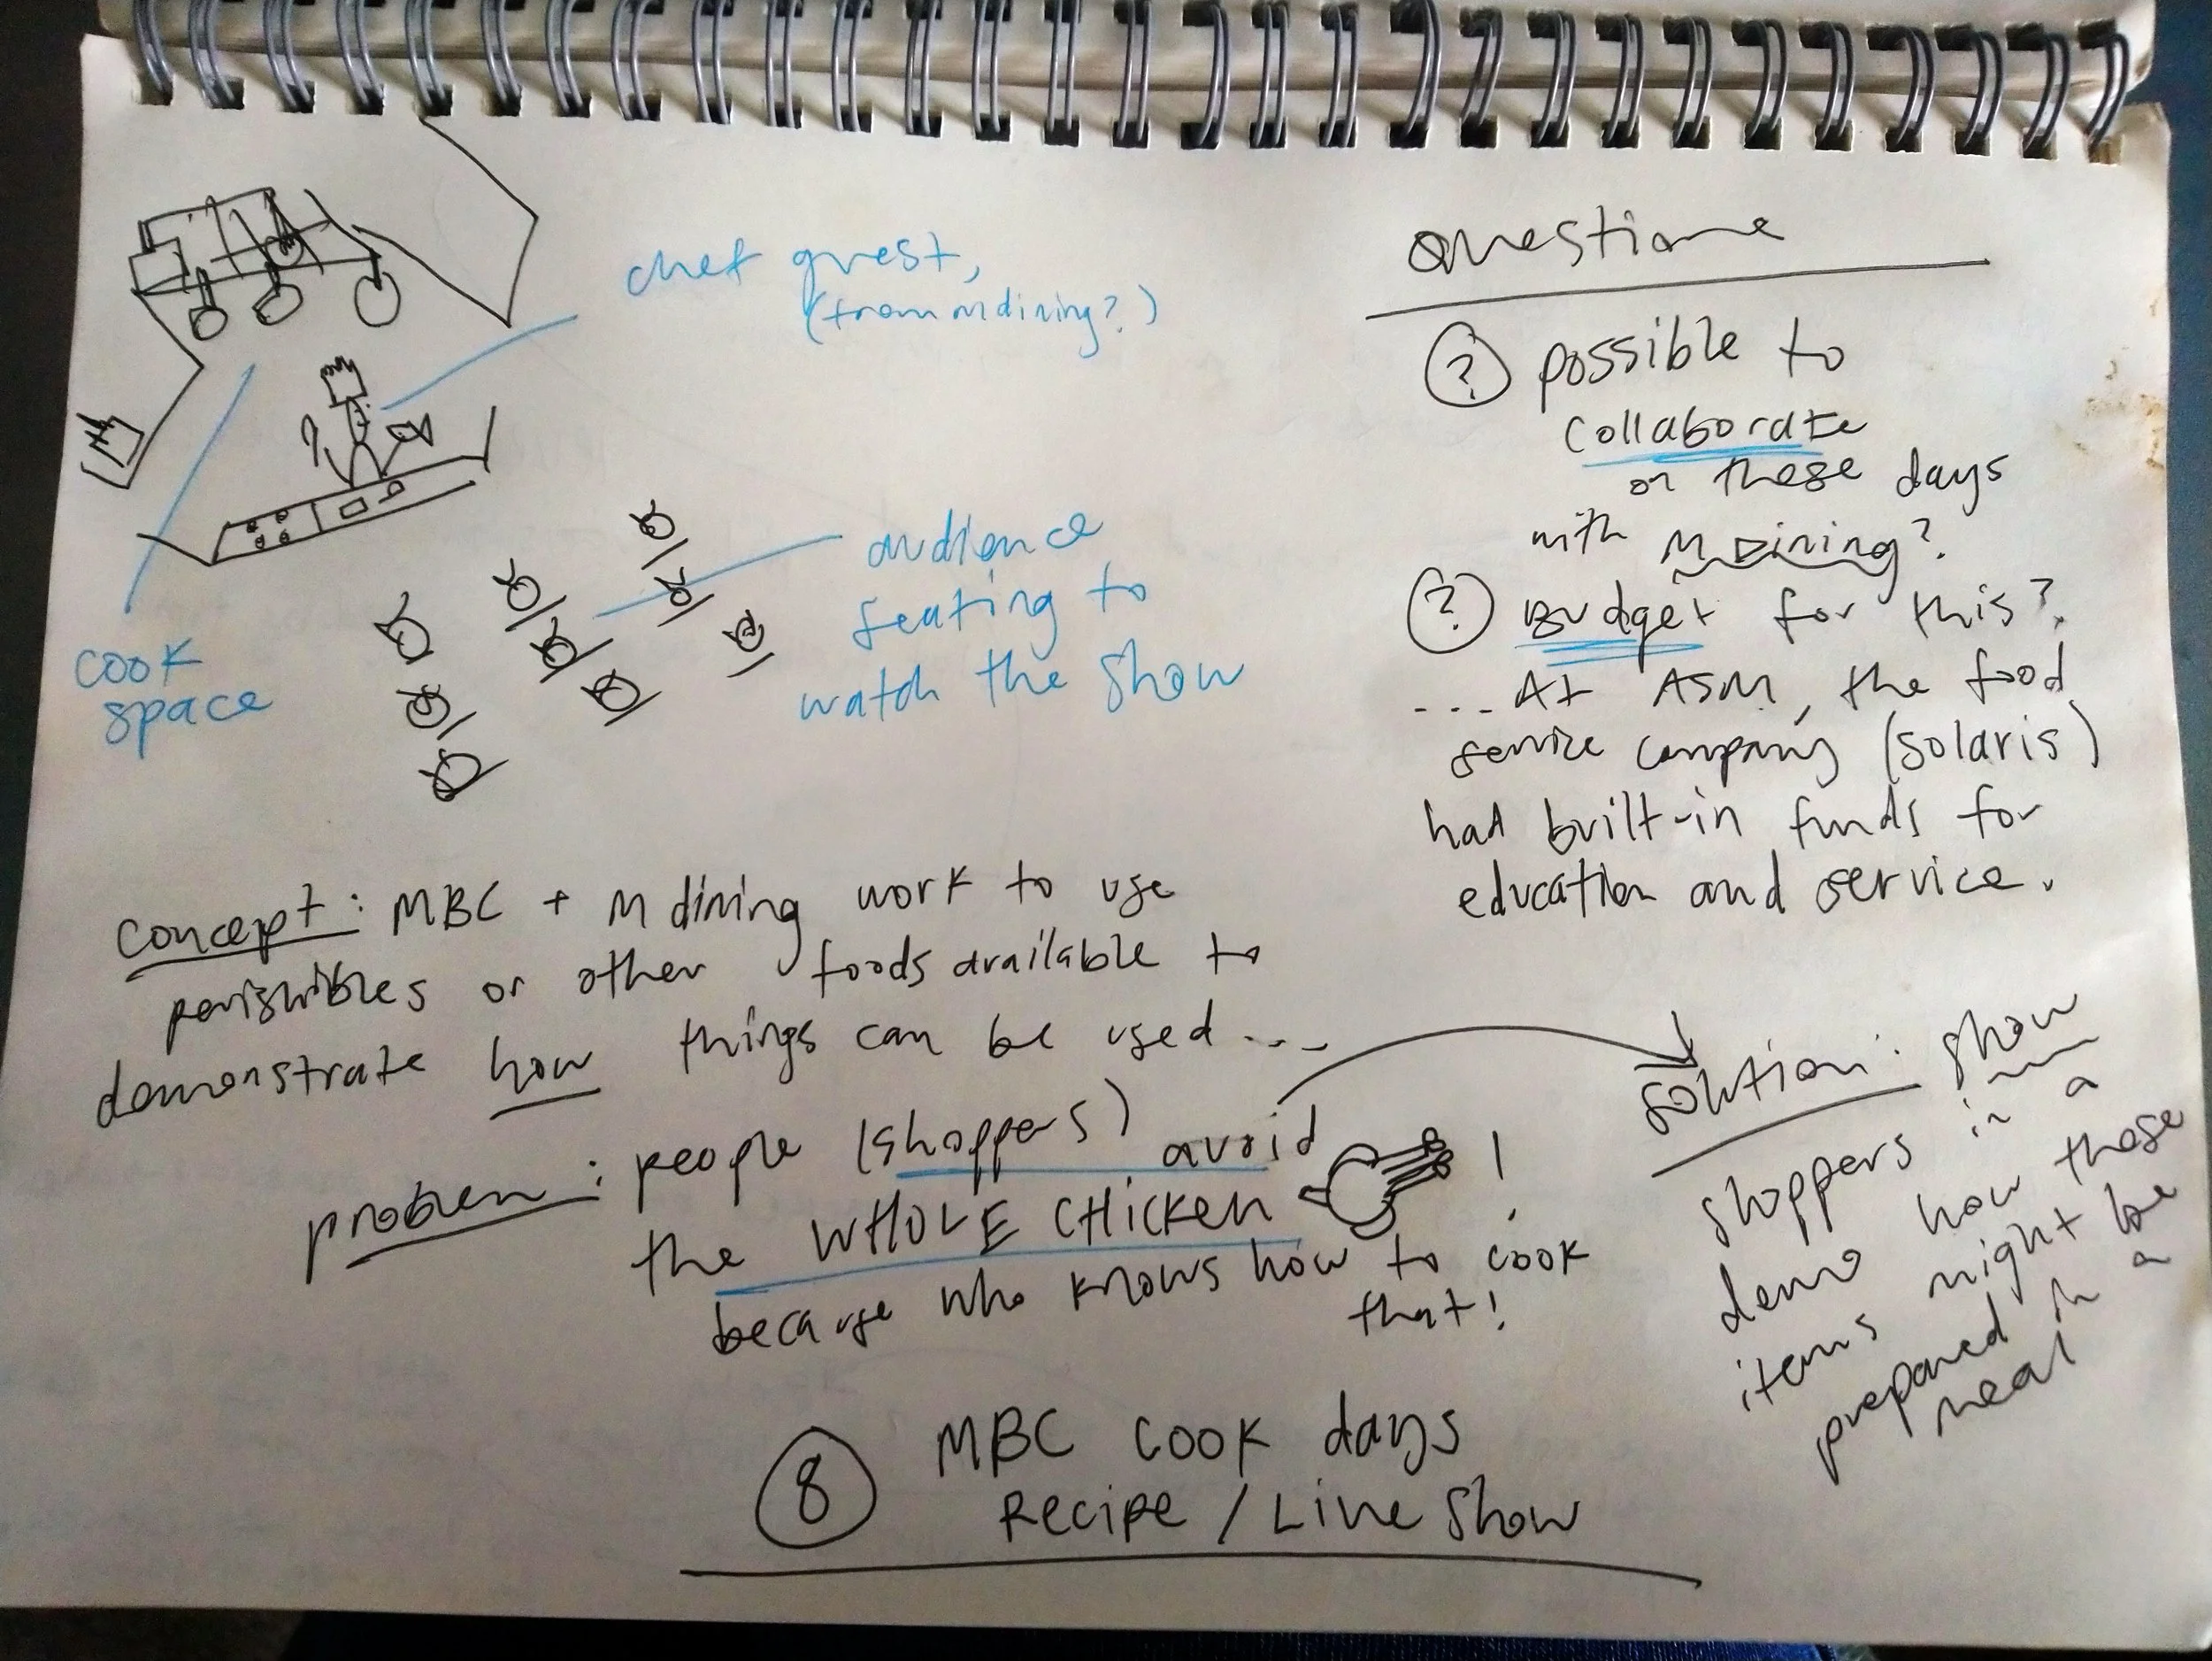 chef guest,
(from m dining?)
cook
space
audience
seating to
watch the show
Questions
? possible to
collaborate
on these days
with M Dining?
? Budget for this?
... At ASM, the food
service company (solaris)
had built-in funds for
education and service.
concept: MBC + M dining work to use
perishibles or other foods available to
demonstrate how things can be used...
problem: people (shoppers) avoid
the WHOLE CHICKEN !
because who knows how to cook
that!
solution: show
shoppers in a
demo how these
items might be
prepared in a
meal
8 MBC COOK days
Recipe / Live Show